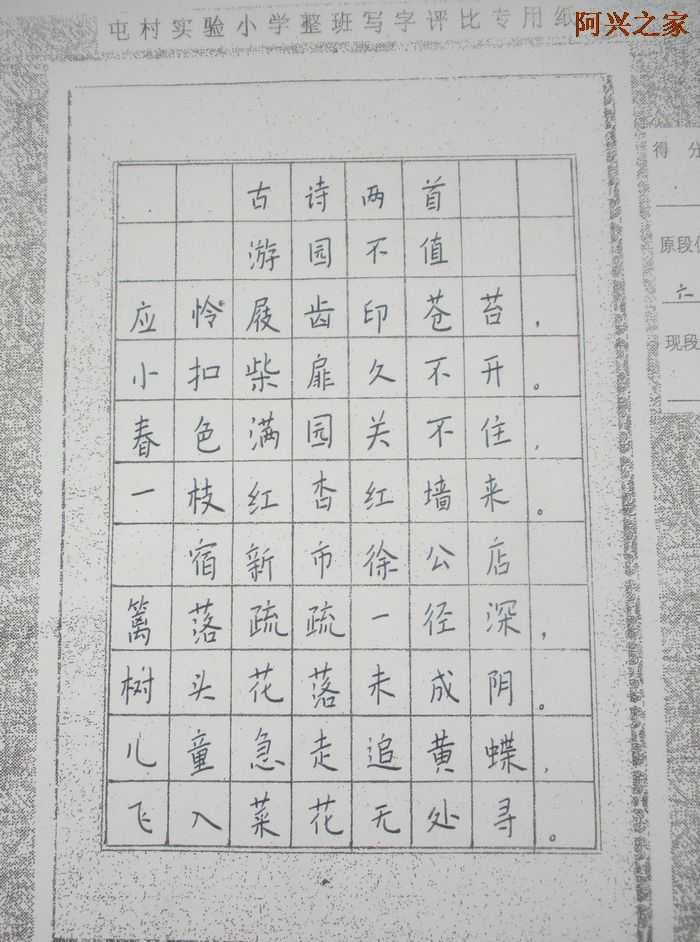 屯村实验小学整班写字评比专用纸
阿兴之家
得 分
原段位
六
现段
古诗两首
游园不值
应怜屐齿印苍苔，
小扣柴扉久不开。
春色满园关不住，
一枝红杏红墙来。
宿新市徐公店
篱落疏疏一径深，
树头花落未成阴。
儿童急走追黄蝶，
飞入菜花无处寻。